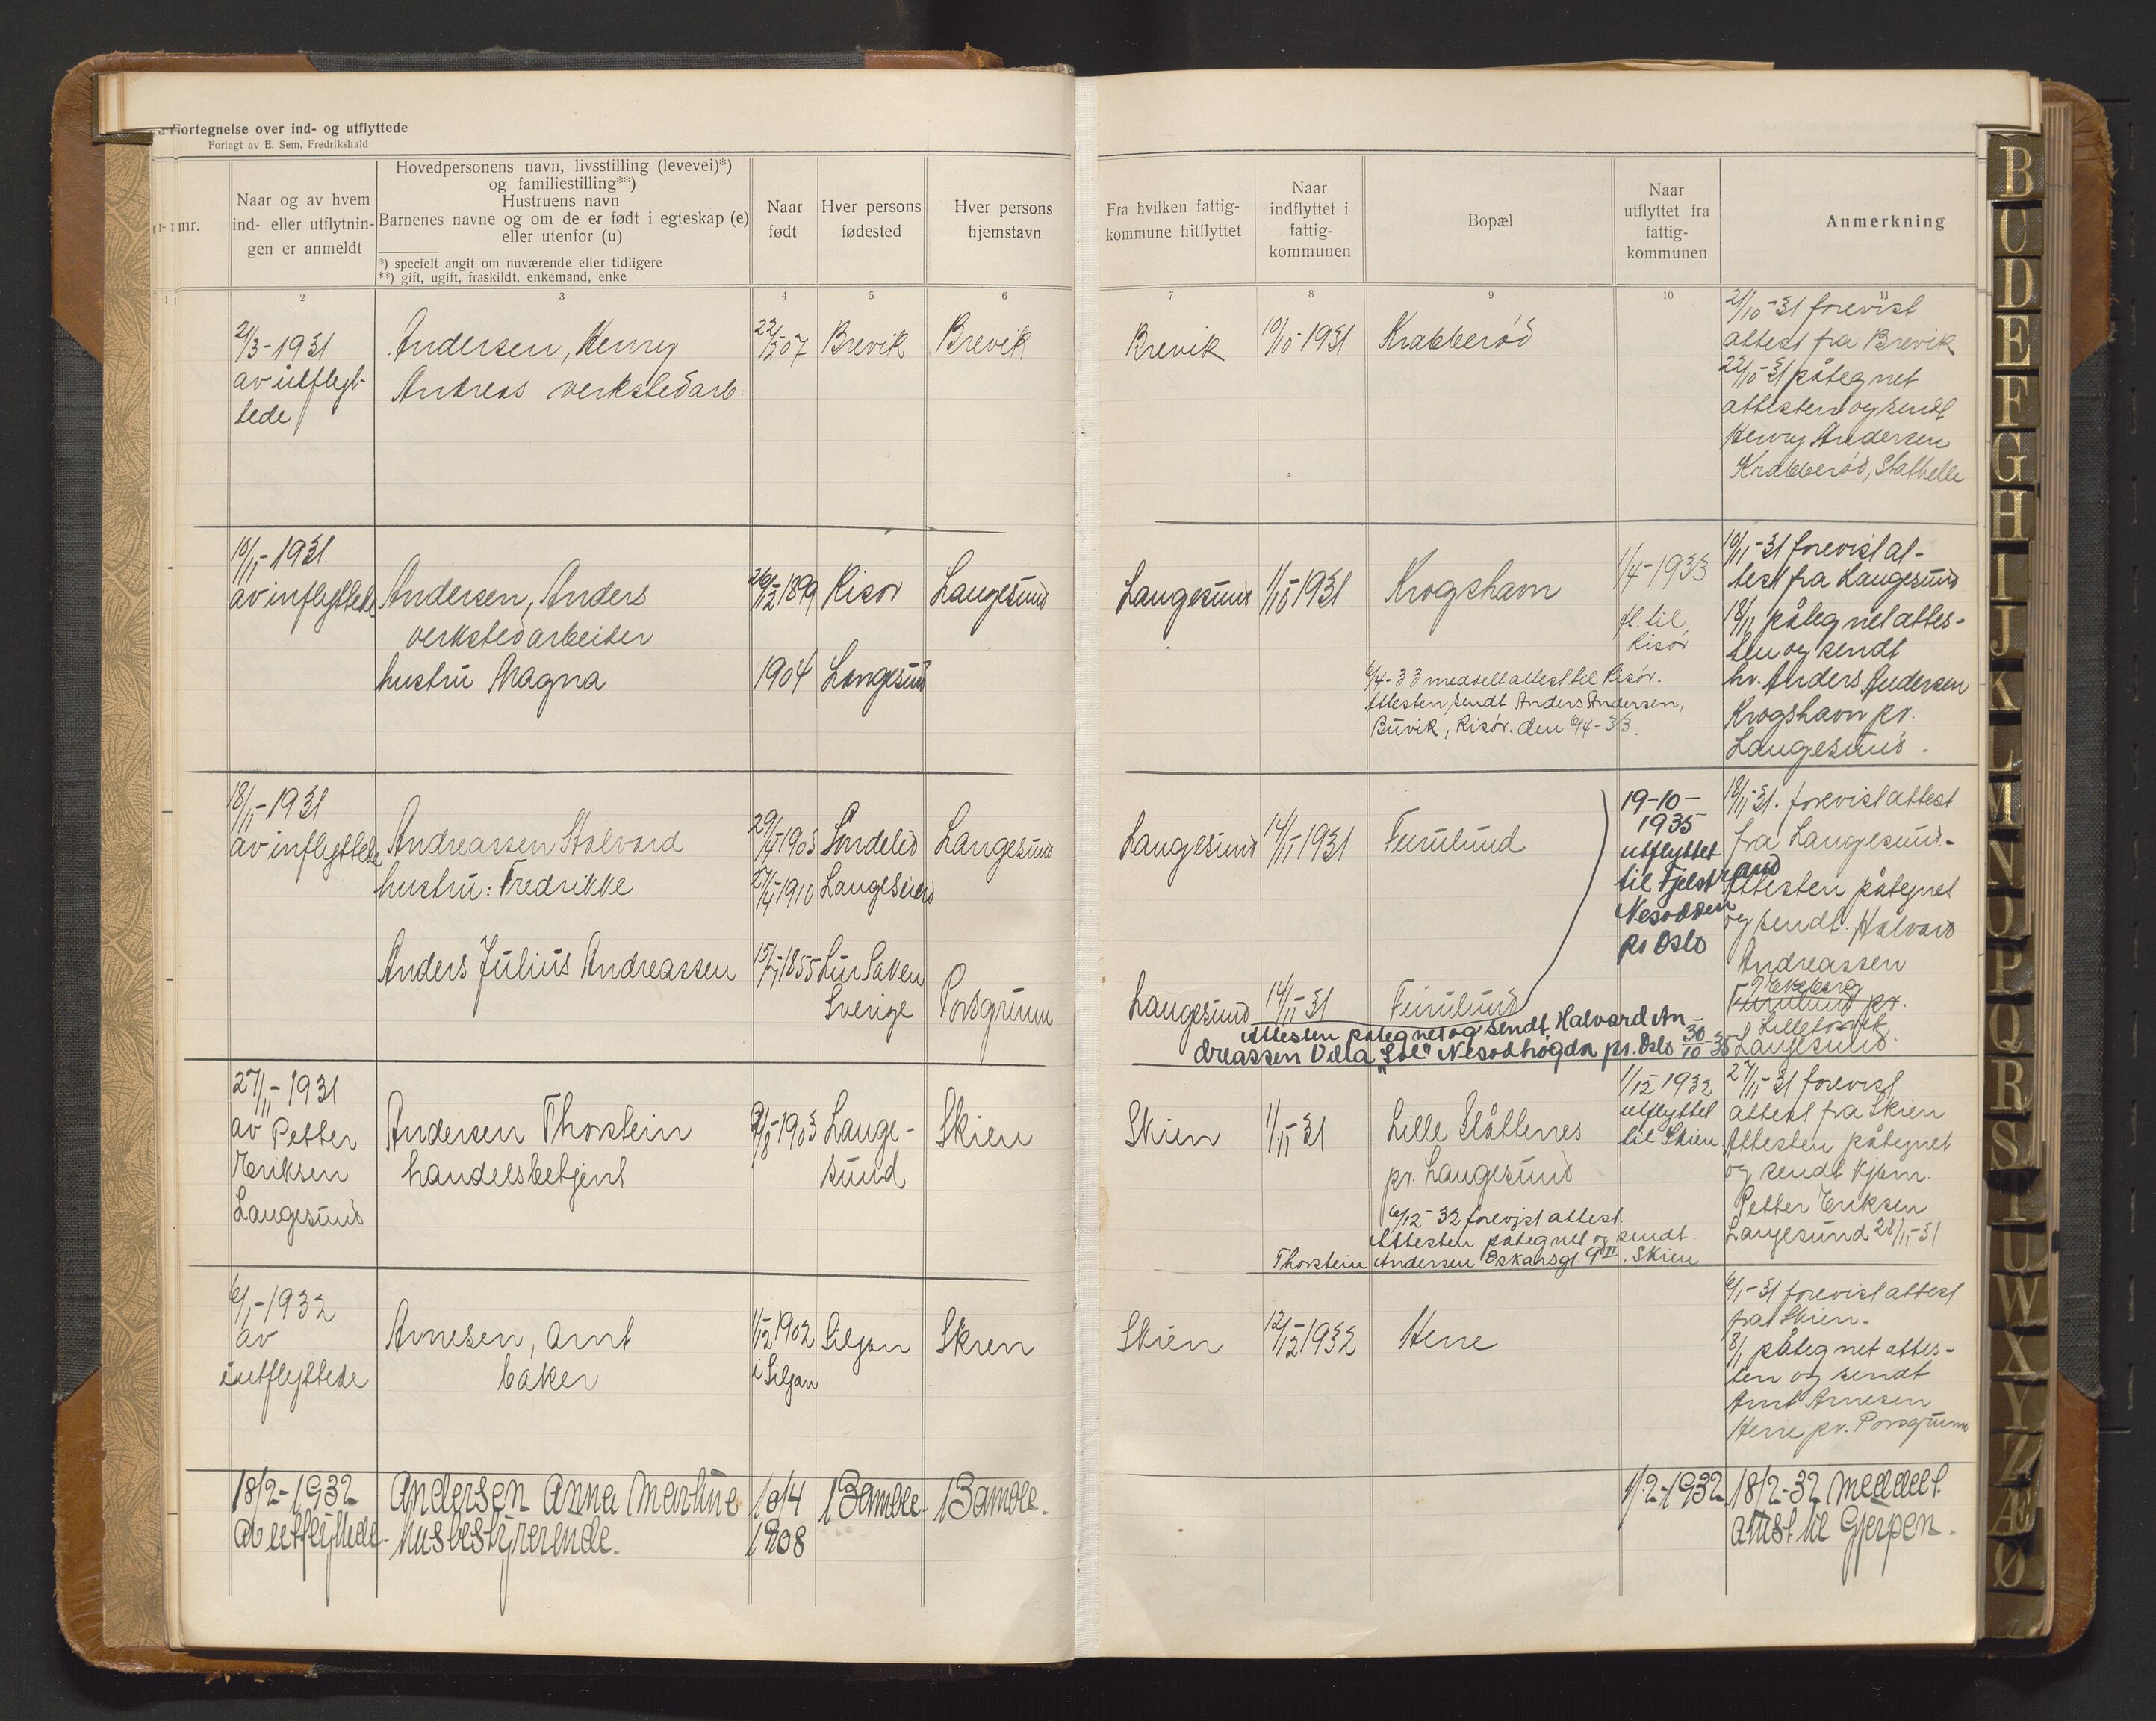 Fortegnelse over ind- og utflyttede
Forlagt av E. Sem, Fredrikshald
nr.
Naar og av hvem
ind- eller utflytnin-
gen er anmeldt
Hovedpersonens navn, livsstilling (levevei)*)
og familiestilling**)
Hustruens navn
Barnenes navne og om de er født i egteskap (e)
eller utenfor (u)
*) specielt angit om nuværende eller tidligere
**) gift, ugift, fraskildt, enkemand, enke
Naar
født
Hver persons
fødested
Hver persons
hjemstavn
Fra hvilken fattig-
kommune hitflyttet
Naar
indflyttet i
fattig-
kommunen
Bopæl
Naar
utflyttet fra
fattig-
kommunen
Anmerkning
1 2 3 4 5 6 7 8 9 10 11
21/3-1931
av utflyt-
tede
Andersen, Henry
Andreas verkstedarb.
Brevik
Brevik
Brevik
10/10-1931
Krabberød
21/10-31 forevist
attest fra Brevik
22/10-31 påtegnet
attesten og sendt
Henry Andersen
Krabberød, Stathelle
10/11-1931.
av inflyttede
Andersen, Anders
verkstedarbeider
hustru Magna
26/12 1899
1904
Risør
Langesund
Langesund
Langesund
1/10 1931
Krogshavn
1/4-1933
fl. til
Risør
6/4-33 meddelt attest til Risør.
Attesten sendt Anders Andersen,
Buvik, Risør. den 6/4-33.
10/11-31 forevist at-
test fra Langesund
18/11 påtegnet attes-
ten og sendt
hr. Anders Andersen
Krogshavn pr.
Langesund.
18/11-1931
av inflyttede
Andreassen Halvard
hustru: Fredrikke
Anders Julius Andreassen
29/4 1903
27/4 1910
Søndeled
Langesund
Sverige
Langesund
Porsgrunn
Langesund
14/11 1931
Furulund
Langesund
14/11-31
Furulund
19-10-
1935
utflyttet
til Fjelstrand
Nesodden
pr Oslo
18/11-31. forevist attest
fra Langesund.-
Attesten påtegnet
og sendt. Halvard
Andreassen
Furulund pr.
Langesund.
Attesten påtegnet og sendt Halvard An-
dreassen Villa "Sol" Nesodhøgda pr. Oslo 30/10-35
27/11-1931
av Petter
Eriksen
Langesund
Andersen Thorstein
handelsbetjent
Lange-
sund
Skien
Skien
1/11-31
Lille Slåttenes
pr. Langesund
6/12-32 forevist attest
Attesten påtegnet og sendt.
Thorstein Andersen Oskarsgt. 9 II. Skien
1/12 1932
utflyttet
til Skien
27/11-31 forevist
attest fra Skien
Attesten påtegnet
og sendt kjøm.
Petter Eriksen
Langesund 28/11-31
6/1-1932
av
inflyttede
Arnesen, Arnt
baker
1/12 1902
i Siljan
Siljan
Skien
Skien
12/12 1932
Herre
6/1-31 forevist attest
fra Skien.
8/1 påtegnet attes-
ten og sendt
Arnt Arnesen
Herre pr. Porsgrunn
18/2-1932
av utflyttede.
Andersen Anna Martine
husbestyrerende.
10/4
1908
Bamble
Bamble.
1/2-1932
18/2-32 meddelt
attest til Gjerpen.
B
C
D
E
F
G
H
I
J
K
L
M
N
O
P
Q
R
S
T
U
W
X
Y
Z
Æ
Ø